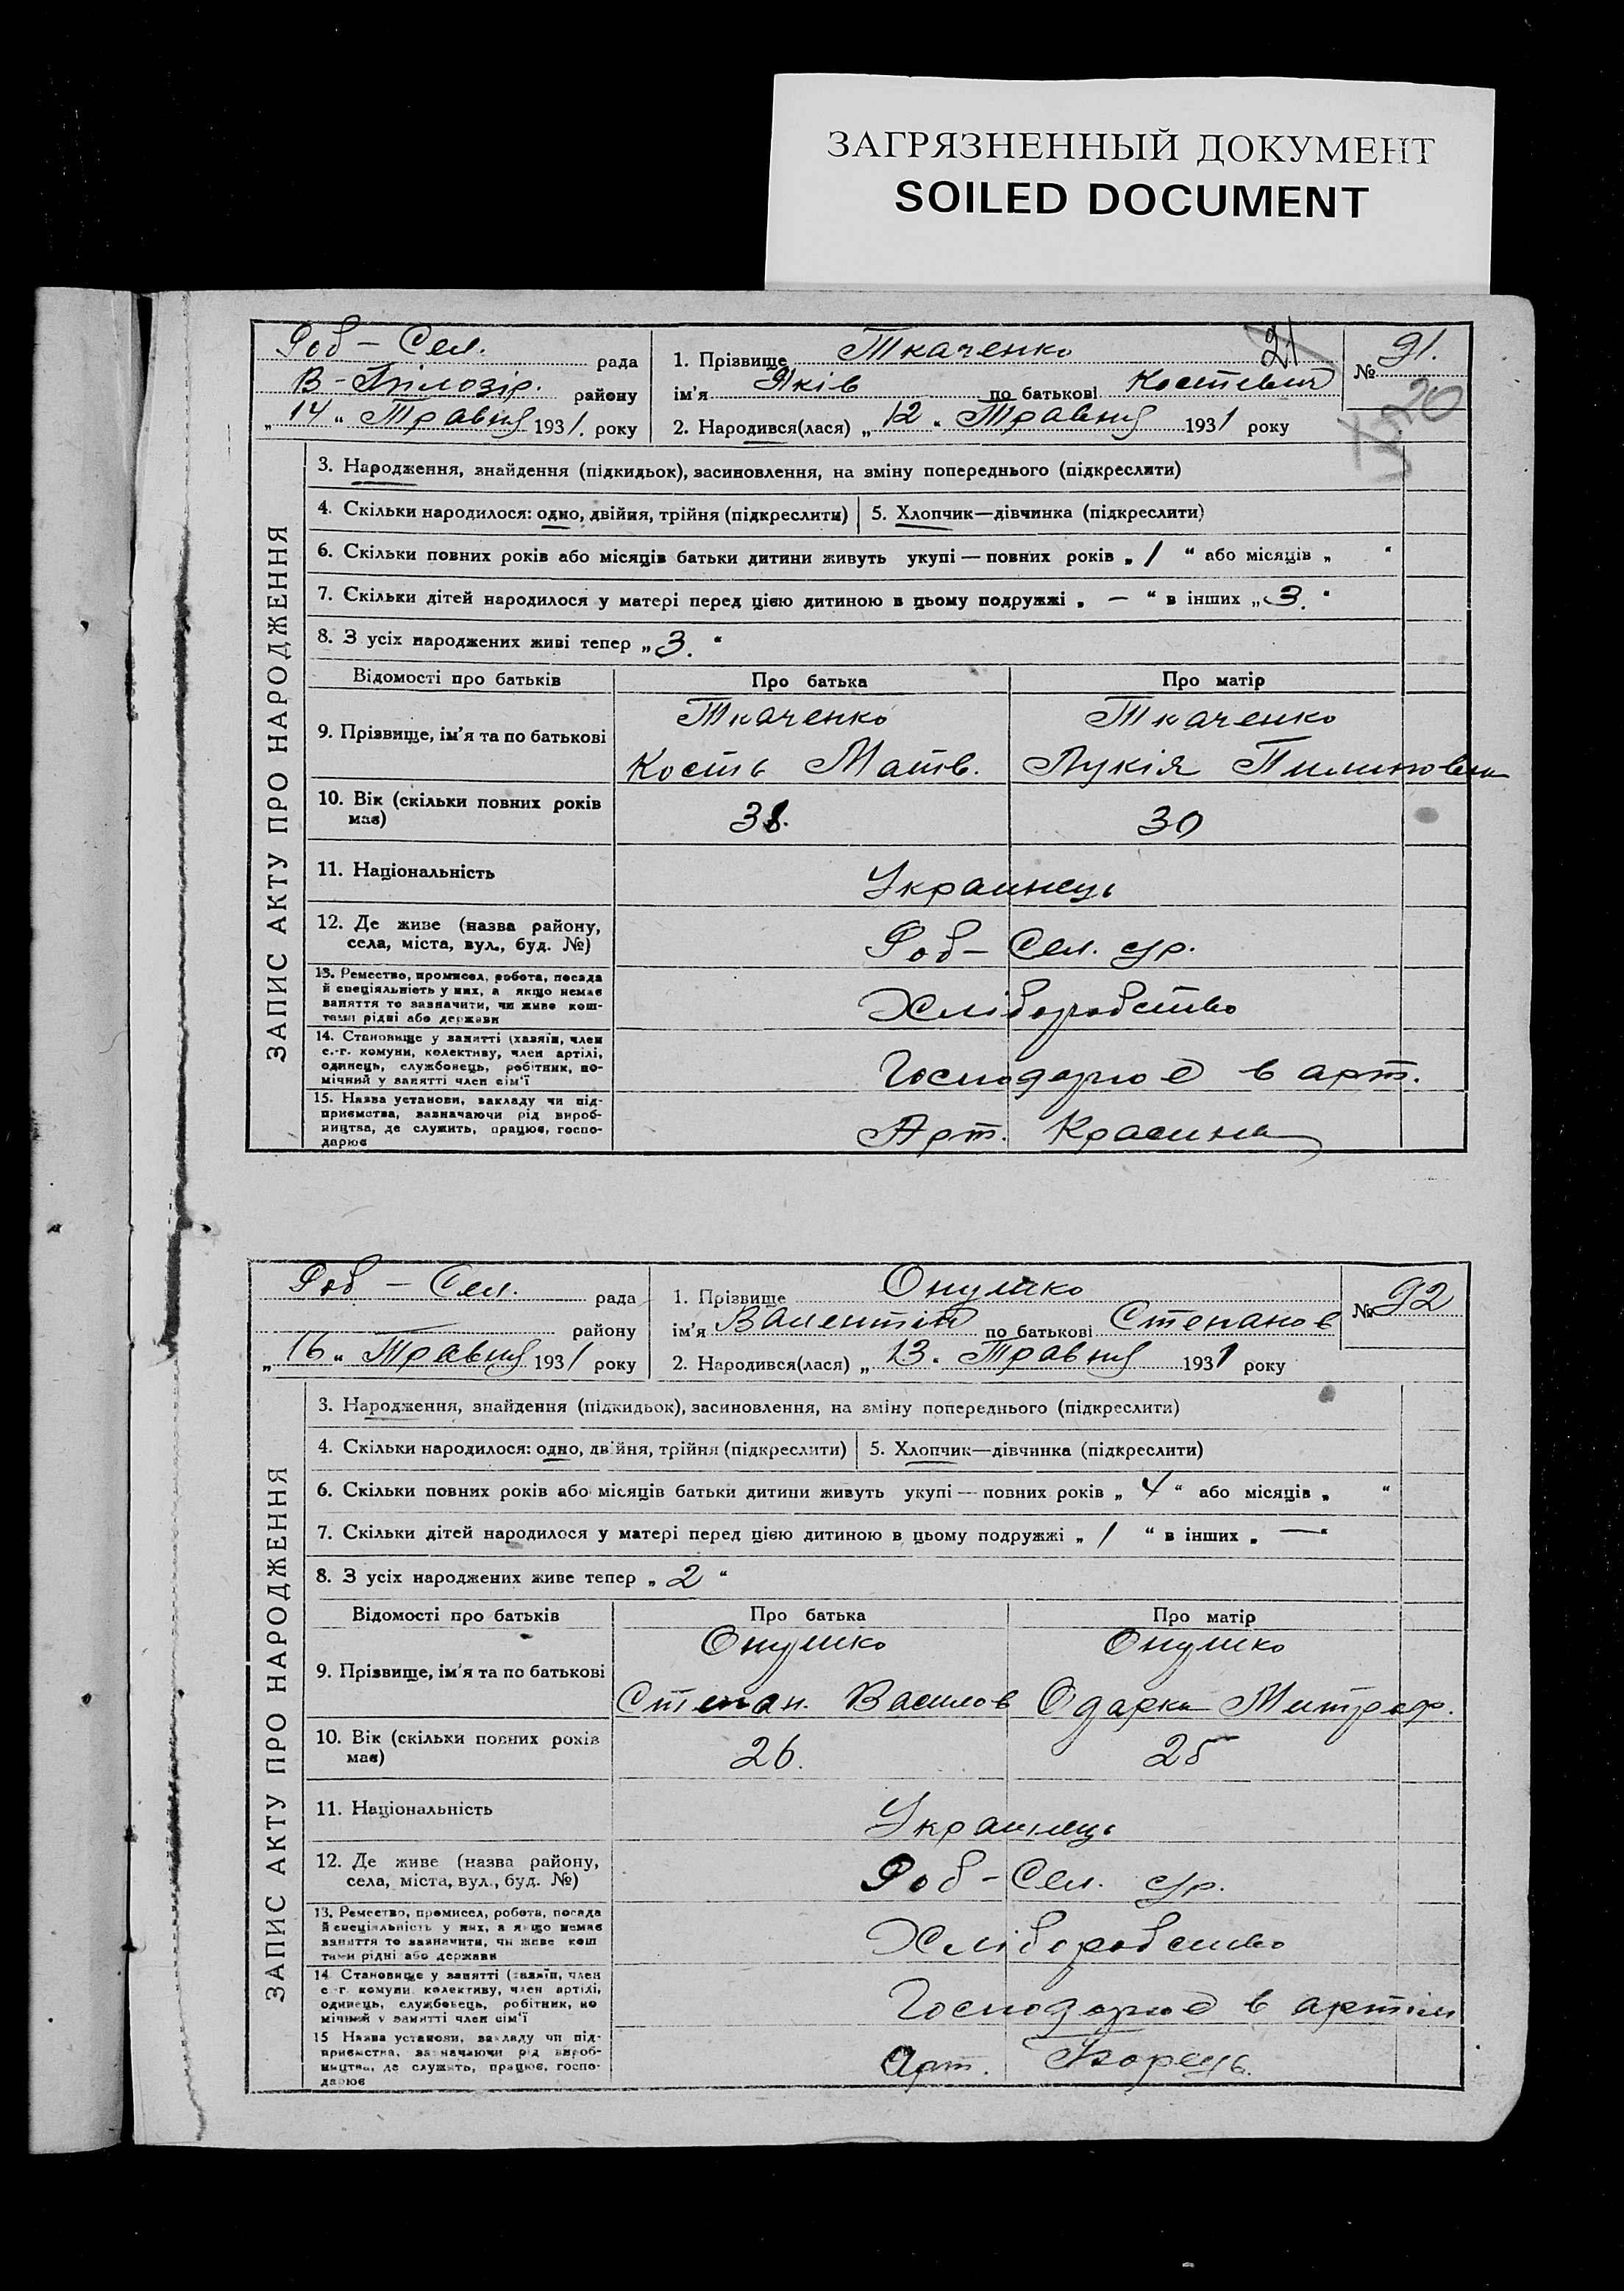 ЗАГРЯЗНЕННЫЙ ДОКУМЕНТ
SOILED DOCUMENT
Роб – Сел. рада
В-Білозір. району
„14" Травня 1931. року
1. Прізвище Ткаченко 21
ім'я Яків по батькові Костевич
2. Народився(лася) „12" Травня 1931 року
№ 91.
20
ЗАПИС АКТУ ПРО НАРОДЖЕННЯ
3. Народження, знайдення (підкидьок), засиновлення, на зміну попереднього (підкреслити)
4. Скільки народилося: одно, двійня, трійня (підкреслити) 5. Хлопчик—дівчинка (підкреслити)
6. Скільки повних років або місяців батьки дитини живуть укупі — повних років „ 1 " або місяців „ "
7. Скільки дітей народилося у матері перед цією дитиною в цьому подружжі „ — " в інших „ 3. "
8. З усіх народжених живі тепер „ 3. "
Відомості про батьків Про батька Про матір
9. Прізвище, ім'я та по батькові
Ткаченко Ткаченко
Кость Матв. Лукія Пилиповна
10. Вік (скільки повних років
має)
38. 30
11. Національність Украинець
12. Де живе (назва району,
села, міста, вул., буд. №)
Роб – Сел. ср.
13. Ремество, промисел, робота, посада
й спеціяльність у них, а якщо немає
заняття то зазначити, чи живе кош-
тами рідні або держави
Хліборобство
14. Становище у занятті (хазяїн, член
с.-г. комуни, колективу, член артілі,
одинець, службовець, робітник, по-
мічний у занятті член сім'ї
Господарює в арт.
15. Назва установи, закладу чи під-
приємства, зазначаючи рід вироб-
ництва, де служить, працює, госпо-
дарює
Арт. Красина
Роб – Сел. рада
району
„16" Травня 1931 року
1. Прізвище Онушко
ім'я Валентін по батькові Степанов
2. Народився(лася) „13" Травня 1931 року
№ 92
ЗАПИС АКТУ ПРО НАРОДЖЕННЯ
3. Народження, знайдення (підкидьок), засиновлення, на зміну попереднього (підкреслити)
4. Скільки народилося: одно, двійня, трійня (підкреслити) 5. Хлопчик—дівчинка (підкреслити)
6. Скільки повних років або місяців батьки дитини живуть укупі — повних років „ 4 " або місяців „ "
7. Скільки дітей народилося у матері перед цією дитиною в цьому подружжі „ 1 " в інших „ — "
8. З усіх народжених живе тепер „ 2 "
Відомості про батьків Про батька Про матір
9. Прізвище, ім'я та по батькові
Онушко Онушко
Степан. Василов Одарка Митроф.
10. Вік (скільки повних років
має)
26. 25
11. Національність Украинець
12. Де живе (назва району,
села, міста, вул., буд. №)
Роб – Сел. ср.
13. Ремество, промисел, робота, посада
й спеціяльність у них, а якщо немає
заняття то зазначити, чи живе кош
тами рідні або держави
Хліборобство
14 Становище у занятті (хазяїн, член
с-г. комуни колективу, член артілі,
одинець, службовець, робітник, по
мічний у занятті член сім'ї
Господарює в артіли
15 Назва установи, закладу чи під-
приємства, зазначаючи рід вироб-
ництва, де служить, працює, госпо-
дарює
Арт. Борець.